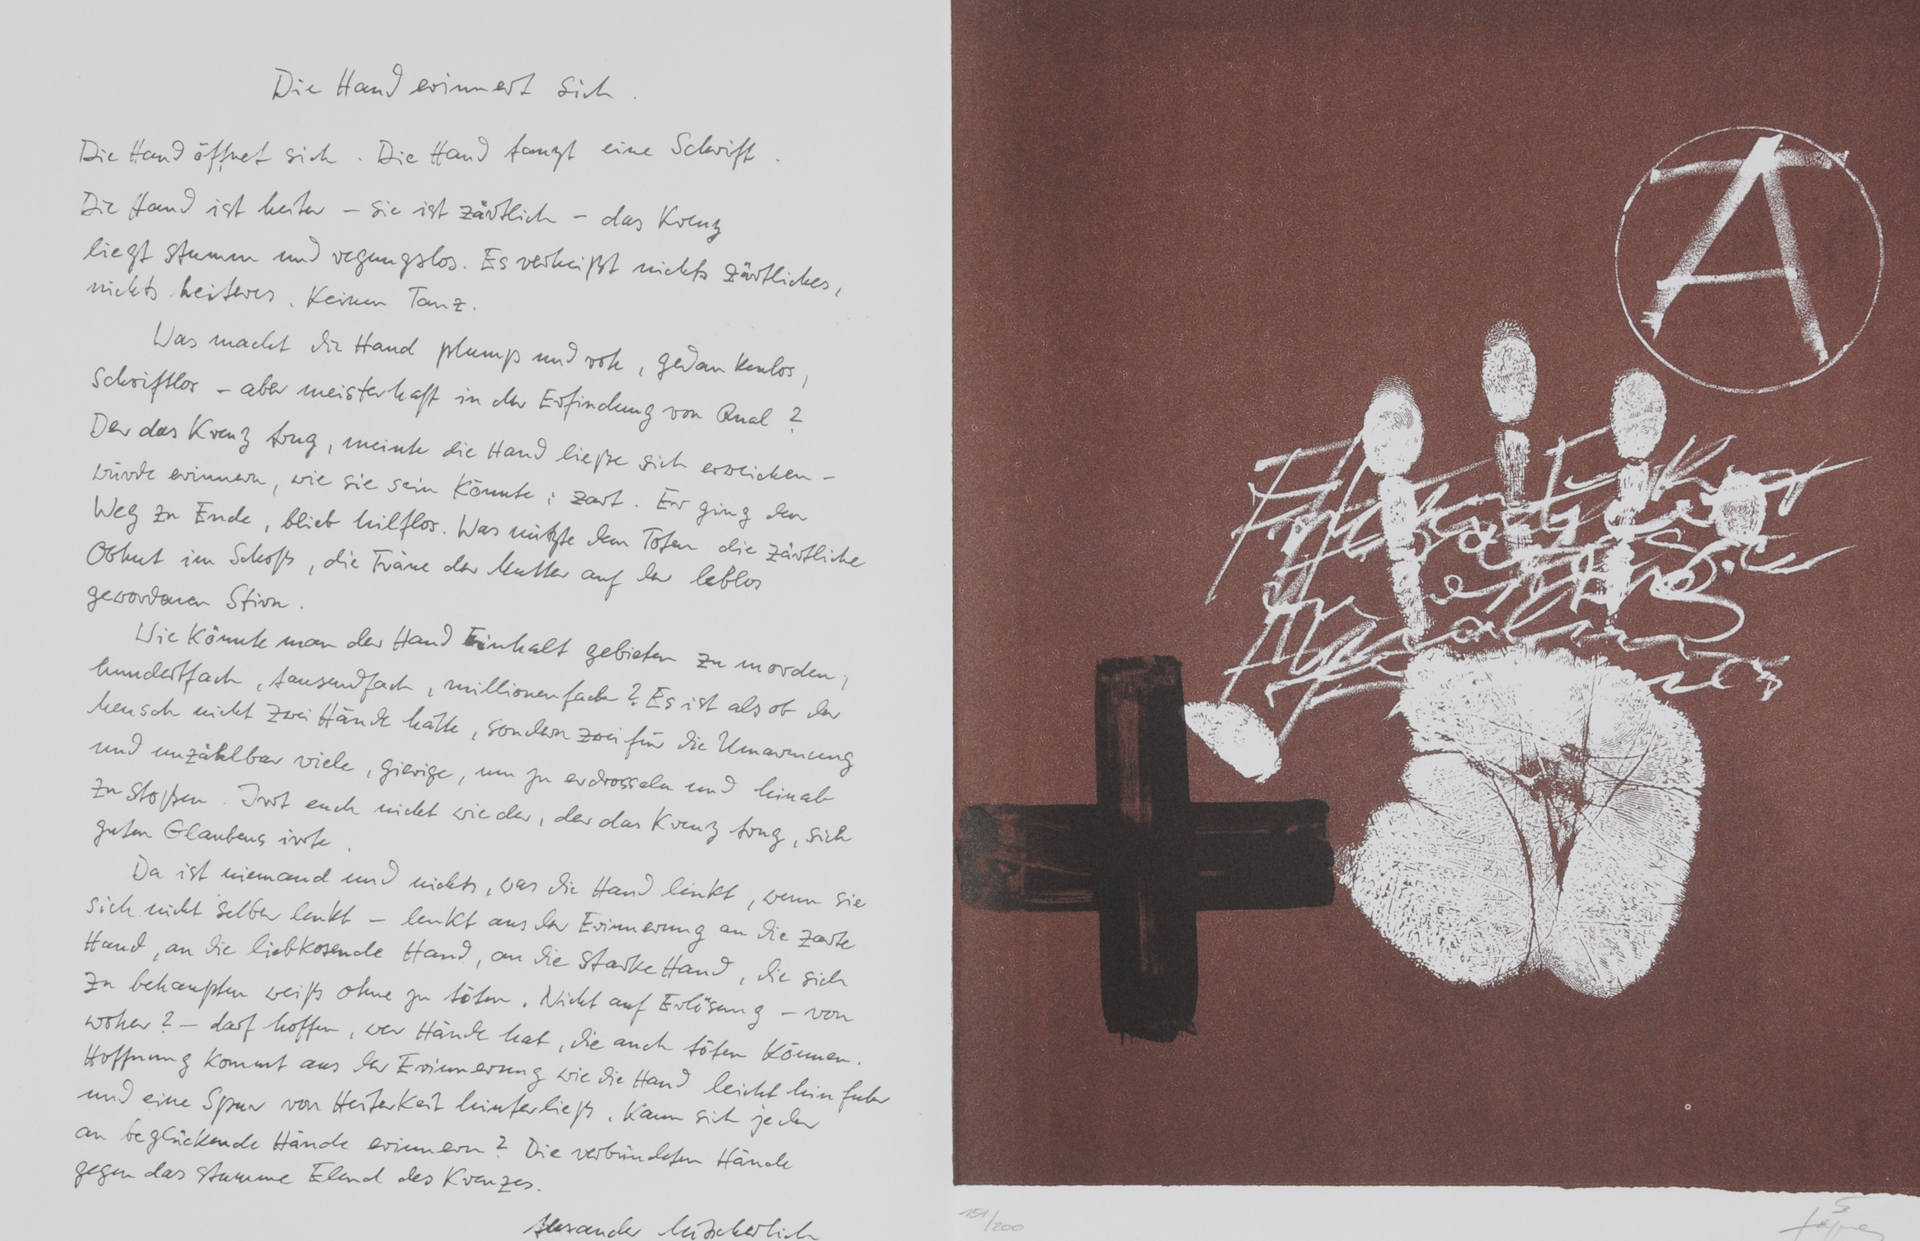 Die Hand erinnert sich.
Die Hand öffnet sich. Die Hand tanzt eine Schrift.
Die Hand ist heiter – sie ist zärtlich – das Kreuz
liegt stumm und regungslos. Es verheißt nichts zärtliches,
nichts heiteres. Keinen Tanz.
Was macht die Hand plump und roh, gedankenlos,
schriftlos – aber meisterhaft in der Erfindung von Qual?
Der das Kreuz trug, meinte die Hand ließe sich erweichen –
würde erinnern, wie sie sein könnte: zart. Er ging den
Weg zu Ende, blieb hilflos. Was nützte dem Toten die zärtliche
Obhut im Schoß, die Träne der Mutter auf der leblos
gewordenen Stirn.
Wie könnte man der Hand Einhalt gebieten zu morden,
hundertfach, tausendfach, millionenfach? Es ist als ob der
Mensch nicht zwei Hände hätte, sondern zwei für die Umarmung
und unzählbar viele, gierige, um zu erdrosseln und hinab
zu stoßen. Irrt euch nicht wieder, der das Kreuz trug, sich
guten Glaubens irrte.
Da ist niemand und nichts, was die Hand lenkt, wenn sie
sich nicht selber lenkt – lenkt aus der Erinnerung an die zarte
Hand, an die liebkosende Hand, an die starke Hand, die sich
zu behaupten weiß ohne zu töten. Nicht auf Erlösung – von
woher? – darf hoffen, wer Hände hat, die auch töten können.
Hoffnung kommt aus der Erinnerung wie die Hand leicht hinfuhr
und eine Spur von Heiterkeit hinterließ. Kann sich jeder
an beglückende Hände erinnern? Die verbündeten Hände
gegen das stumme Elend des Kreuzes.
Alexander Mitscherlich
A
151/200
Tàpies